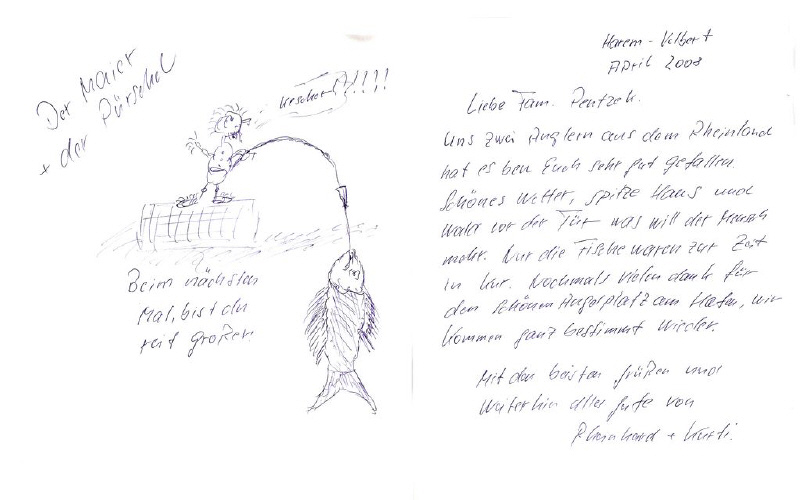 Der Maier
+ der Pürschel
Kescher!!!!!!
Beim nächsten
Mal, bist du
reif großer
April 2008
Liebe Fam. Pentzek.
Uns zwei Anglern aus dem Rheinland
hat es bei Euch sehr gut gefallen.
Schönes Wetter, spitze Haus und
vor der Tür was will der Mensch
mehr. Nur die Fische waren zur Zeit
in kur. Nochmals vielen dank für
den schönen Angelplatz am Hafen, wir
kommen ganz bestimmt wieder.
Mit den besten grüßen und
Weiterhin alles gute von
+ Kurti.